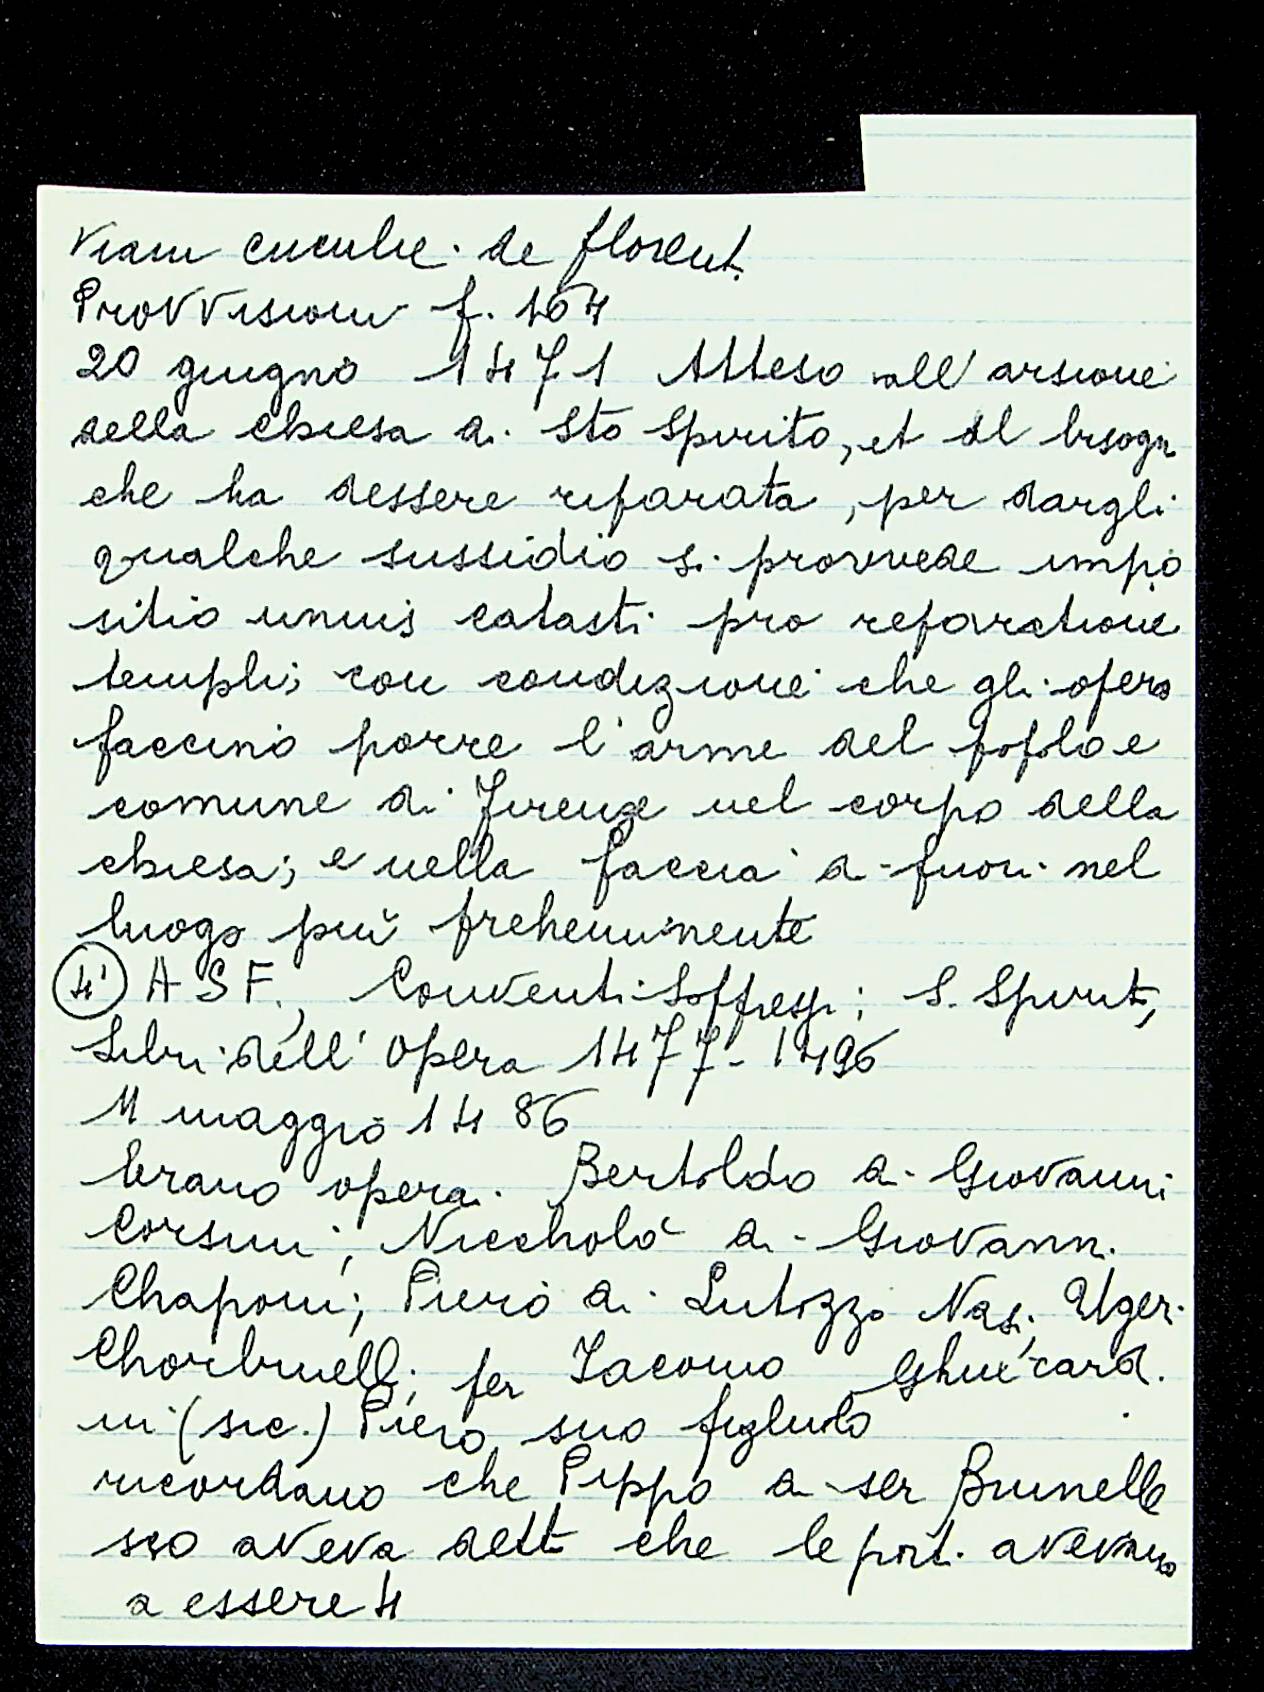 viam cuculie. de florent.
Provvisioni f. 164
20 giugno 1471 Atteso all'arsione
della chiesa di Sto Spirito, et al bisogn
che ha dessere riparata, per dargli
qualche sussidio si provvede impo
sitio unius catasti pro reparatione
templi; con condizione che gli opera
faccino porre l'arme del popolo e
comune di Firenze nel corpo della
chiesa; e nella faccia di fuori nel
luogo più preheminente
4' A S F., Conventi Soppressi; S. Spirit,
Libri dell' Opera 1477-1496
11 maggio 1486
Erano operai. Bertoldo di Giovanni
Corsini, Niccholò di Giovann.
Chaponi; Piero di Lutozzo Nasi; Uger.
Chorbinelli; per Iacomo Ghuicard.
ni (sic.) Piero suo figluolo
ricordano che Pippo di ser Brunelle
sco aveva dett che le port. avevano
a essere 4